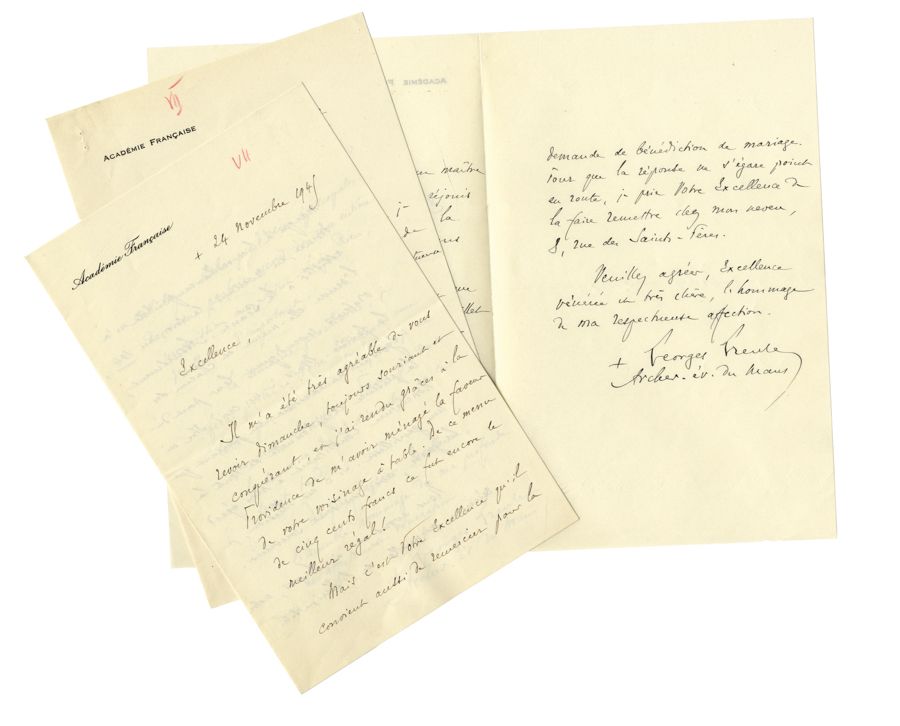 VII
ACADÉMIE FRANÇAISE
VII
Académie Française
+ 24 Novembre 194
Excellence,
Il m'a été très agréable de vous
revoir dimanche, toujours souriant et
conquérant, et j'ai rendu grâces à la
Providence de m'avoir ménagé la faveur
de votre voisinage à table. De ce menu
de cinq cents francs ce fut encore le
meilleur régal !
Mais c'est Votre Excellence qu'il
convient aussi de remercier pour la
ACADÉMIE
maître
réjouis
de la
demande de bénédiction de mariage.
Pour que la réponse ne s'égare point
en route, je prie Votre Excellence de
la faire remettre chez mon neveu,
8, rue des Saints-Pères.
Veuillez agréer, Excellence
vénérée et très chère, l'hommage
de ma respectueuse affection.
+ Georges Grente
Archev.-év. du Mans